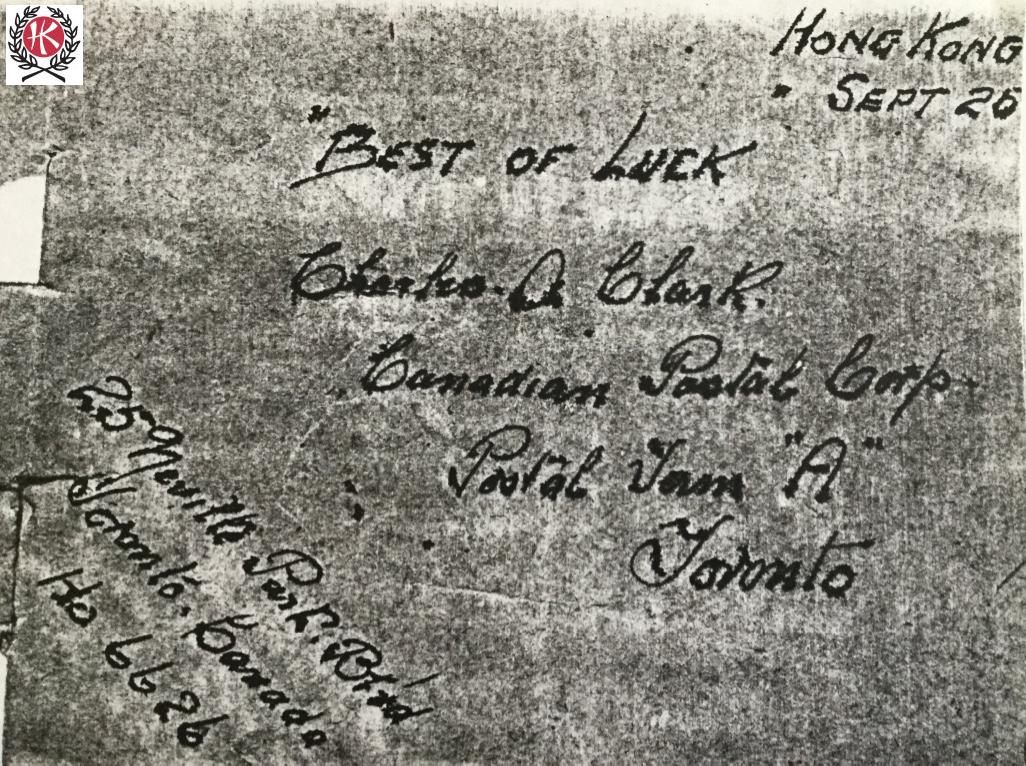 HK
HONG KONG
" SEPT 25
"BEST OF LUCK
Charles. A Clark.
Canadian Postal Corp.
Postal Term "A"
Toronto
25 Neville Park. Blvd
Toronto. Canada
Ho 6626